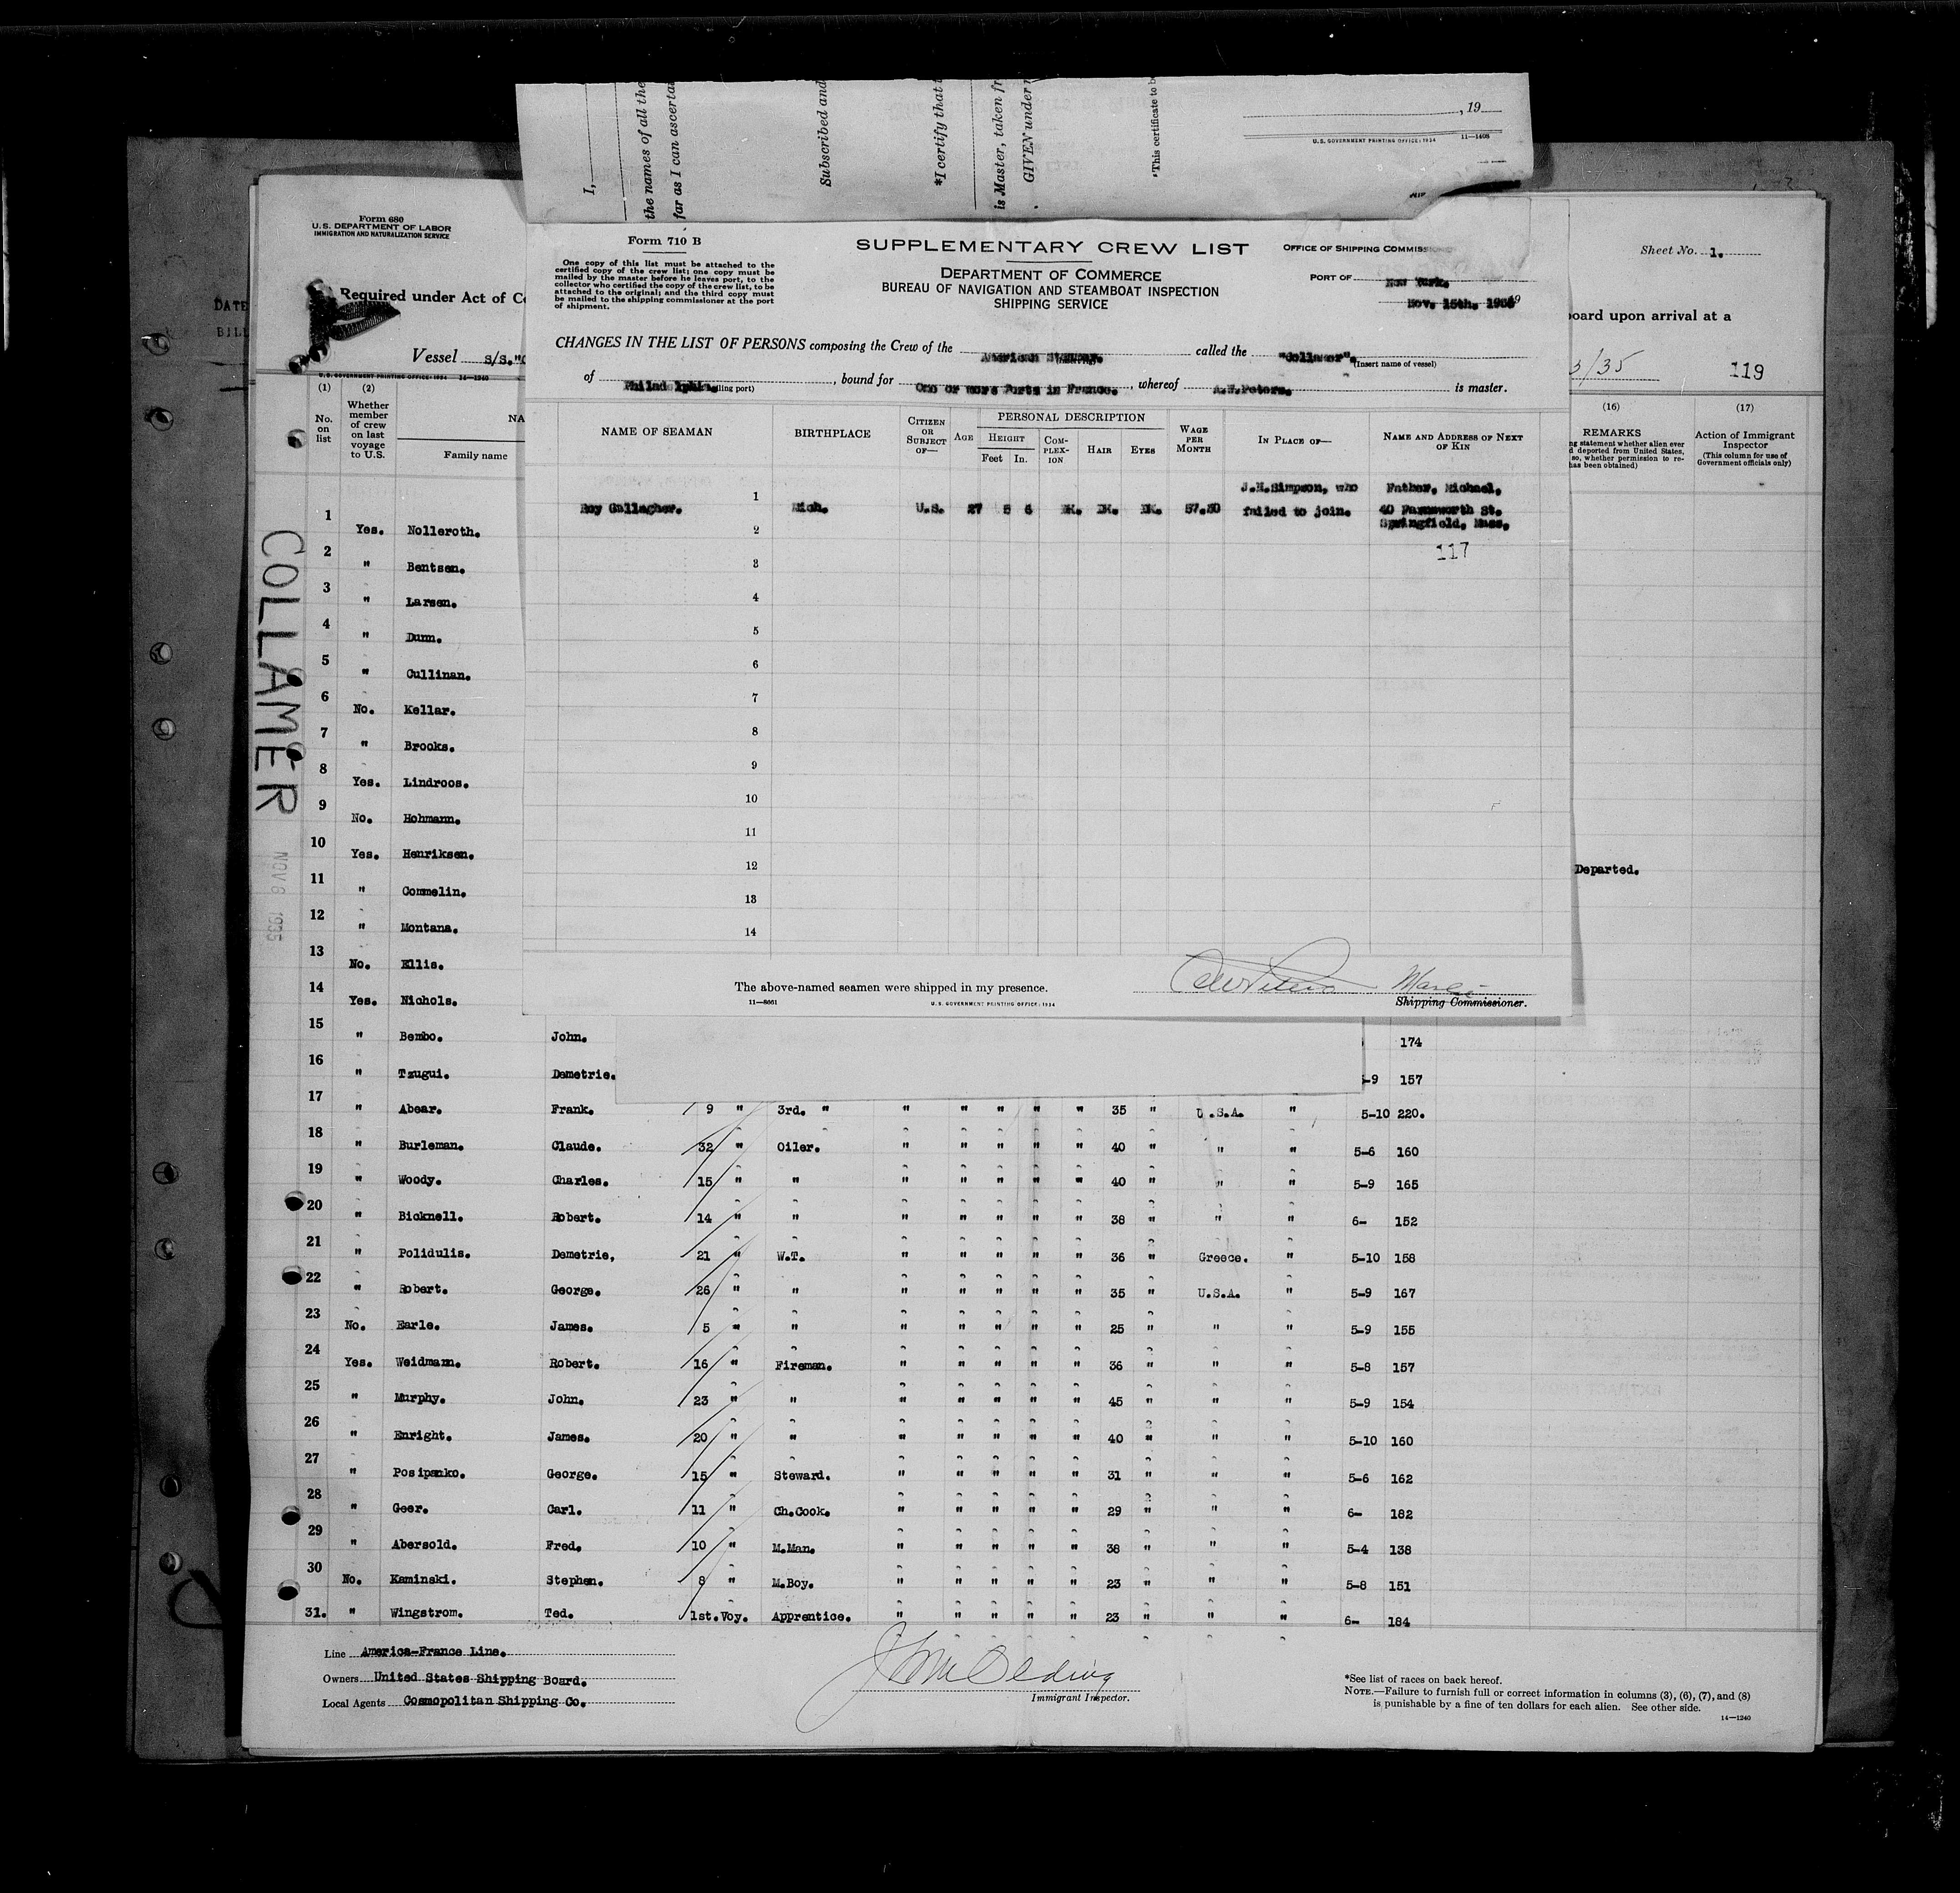 I,
the names of all the
far as I can ascerta
Subscribed and
*I certify that
is Master, taken fr
GIVEN under
*This certificate to b
, 19
U.S. GOVERNMENT PRINTING OFFICE: 1934
11—1408
Form 680
U.S. DEPARTMENT OF LABOR
IMMIGRATION AND NATURALIZATION SERVICE
Required under Act of Co
DATE
BILL
Vessel S/S."C
U.S. GOVERNMENT PRINTING OFFICE: 1934 14—1240
Sheet No. 1.
board upon arrival at a
3/35
119
Form 710 B
One copy of this list must be attached to the
certified copy of the crew list; one copy must be
mailed by the master before he leaves port, to the
collector who certified the copy of the crew list, to be
attached to the original; and the third copy must
be mailed to the shipping commissioner at the port
of shipment.
SUPPLEMENTARY CREW LIST
DEPARTMENT OF COMMERCE
BUREAU OF NAVIGATION AND STEAMBOAT INSPECTION
SHIPPING SERVICE
OFFICE OF SHIPPING COMMISSIONE
PORT OF New York.
Nov. 15th. 193
CHANGES IN THE LIST OF PERSONS composing the Crew of the American Steamer. called the "Collamer".
(Insert name of vessel)
of Philadelphia. , bound for One or more Ports in France. , whereof A.W.Peters. is master.
NAME OF SEAMAN
BIRTHPLACE
CITIZEN OR SUBJECT OF—
AGE
PERSONAL DESCRIPTION
HEIGHT
Feet In.
COMPLEXION
HAIR
EYES
WAGE PER MONTH
IN PLACE OF—
NAME AND ADDRESS OF NEXT OF KIN
1
Roy Gallagher. Mich. U.S. 27 5 6 DK. DK. DK. 57.50 J.H.Simpson, who failed to join. Father, Michael, 40 Farnsworth St. Springfield, Mass.
117
2
3
4
5
6
7
8
9
10
11
12
13
14
The above-named seamen were shipped in my presence.
11—8661
U.S. GOVERNMENT PRINTING OFFICE: 1934
Shipping Commissioner.
(1)
No. on list
(2)
Whether member of crew on last voyage to U.S.
NA
Family name
(16)
REMARKS
ng statement whether alien ever
d deported from United States,
so, whether permission to re-
has been obtained)
(17)
Action of Immigrant Inspector
(This column for use of Government officials only)
COLLAMER
NOV 8 1935
1 Yes. Nolleroth.
2 " Bentsen.
3 " Larsen.
4 " Dunn.
5 " Cullinan.
6 No. Kellar.
7 " Brooks.
8 Yes. Lindroos.
9 No. Hohmann.
10 Yes. Henriksen.
Departed.
11 " Commelin.
12 " Montana.
13 No. Ellis.
14 Yes. Nichols.
15 " Bembo. John. 174
16 " Tzugui. Demetrie. -9 157
17 " Abear. Frank. 9 " 3rd. " " " " " " 35 " U.S.A. " 5-10 220.
18 " Burleman. Claude. 32 " Oiler. " " " " " 40 " " " 5-6 160
19 " Woody. Charles. 15 " " " " " " " 40 " " " 5-9 165
20 " Bicknell. Robert. 14 " " " " " " " 38 " " " 6- 152
21 " Polidulis. Demetrie, 21 " W.T. " " " " " 36 " Greece. " 5-10 158
22 " Robert. George. 26 " " " " " " " 35 " U.S.A. " 5-9 167
23 No. Earle. James. 5 " " " " " " " 25 " " " 5-9 155
24 Yes. Weidmann. Robert. 16 " Fireman. " " " " " 36 " " " 5-8 157
25 " Murphy. John. 23 " " " " " " " 45 " " " 5-9 154
26 " Enright. James. 20 " " " " " " " 40 " " " 5-10 160
27 " Posipanko. George. 15 " Steward. " " " " " 31 " " " 5-6 162
28 " Geer. Carl. 11 " Ch.Cook. " " " " " 29 " " " 6- 182
29 " Abersold. Fred. 10 " M.Man. " " " " " 38 " " " 5-4 138
30 No. Kaminski. Stephen. 8 " M.Boy. " " " " " 23 " " " 5-8 151
31. " Wingstrom. Ted. 1st.Voy. Apprentice. " " " " " 23 " " " 6- 184
Line America-France Line.
Owners United States Shipping Board.
Local Agents Cosmopolitan Shipping Co.
Immigrant Inspector.
*See list of races on back hereof.
NOTE.—Failure to furnish full or correct information in columns (3), (6), (7), and (8)
is punishable by a fine of ten dollars for each alien. See other side.
14—1240